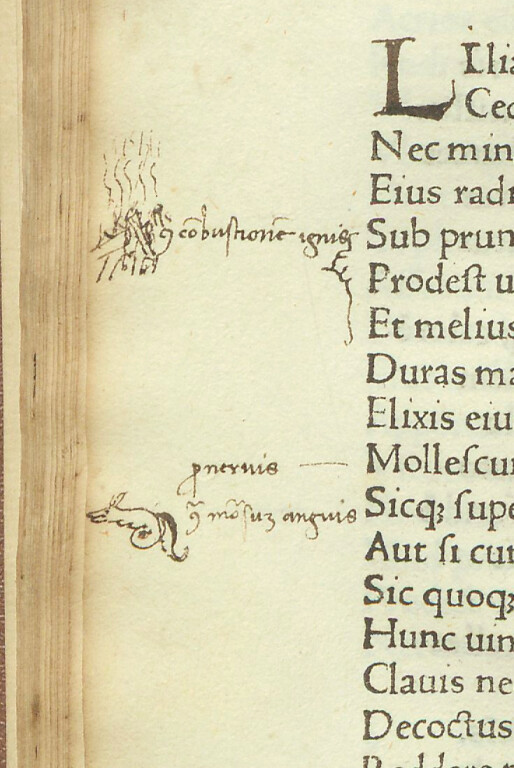 Lilia
Ced
Nec min
Eius radi
ꝯ cōbustionē ignis
Sub prun
Prodeſt u
Et melius
Duras ma
Elixis eiu
ꝓnervis
Molleſcun
ꝯͣ morſuꝫ anguis
Sicqꝫ ſupe
Aut ſi cut
Sic quoqꝫ
Hunc uin
Clauis ne
Decoctus